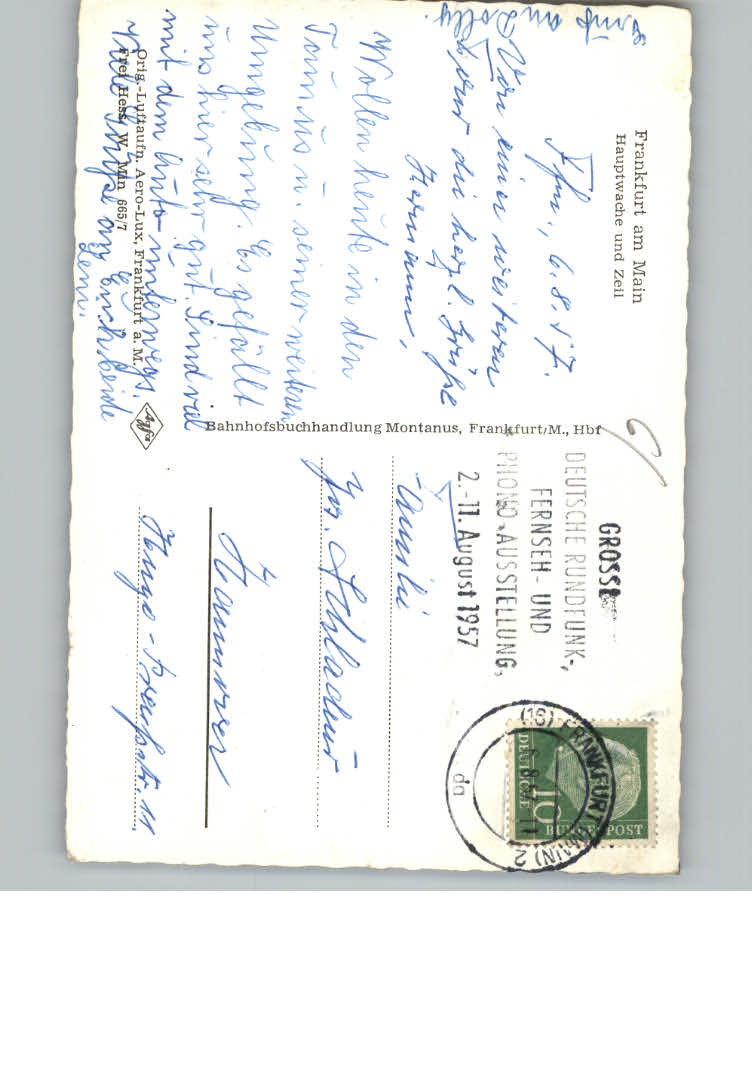 Frankfurt am Main
Hauptwache und Zeil
Ffm., 6.8.57.
Von einer weiteren
Tour die herzl. Grüße
Hermann.
an Dolly.
Wollen heute in den
Taunus u. seiner weiteren
Umgebung. Es gefällt
uns hier sehr gut. Sind viel
mit dem Auto unterwegs.
Viele Grüße an Euch beide
Leni.
Orig.-Luftaufn. Aero-Lux, Frankfurt a. M.
Frei Hess. W. Min 665/7
Agfa
Bahnhofsbuchhandlung Montanus, Frankfurt/M., Hbf
GROSSE
DEUTSCHE RUNDFUNK-,
FERNSEH- UND
PHONO-AUSSTELLUNG,
2.-11. August 1957
(16) FRANKFURT (MAIN) 2
6.8.57.-11
da
10
DEUTSCHE
BUNDESPOST
Familie
Jos.
Hannover